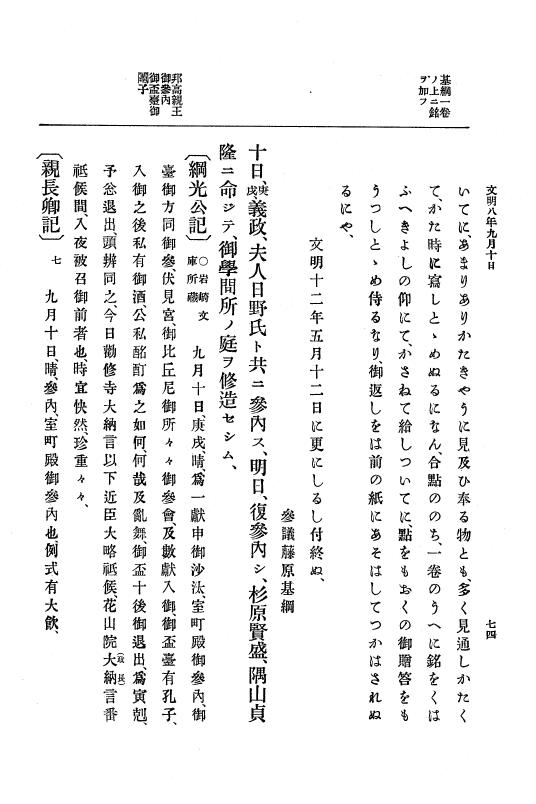 文明八年九月十日
七四
いてに、あまりありかたきやうに見及ひ奉る物とも、多く見通しかたく
て、かた時に寫しとゝめぬるになん、合點ののち、一卷のうへに銘をくは
ふへきよしの仰にて、かさねて給しついてに、點をもおくの御贈答をも
うつしとゝめ侍るなり、御返しをは前の紙にあそはしてつかはされぬ
るにや、
文明十二年五月十二日に更にしるし付終ぬ、
參議藤原基綱
基綱一卷
ノ上ニ銘
ヲ加フ
十日、庚戌、義政、夫人日野氏ト共ニ參內ス、明日、復參內シ、杉原賢盛、隅山貞
隆ニ命ジテ、御學問所ノ庭ヲ修造セシム、
〔綱光公記〕○岩崎文庫所藏 九月十日、庚戌、晴、爲一獻申御沙汰、室町殿御參內、御
臺御方同御參、伏見宮、御比丘尼御所々々御參會、及數獻入御、御盃臺有孔子、
入御之後私有御酒、公私酩酊爲之如何、何哉及亂舞、御盃十後御退出、爲寅剋、
予忩退出、頭辨同之、今日勸修寺大納言以下近臣大略祗候、花山院大納言(政長)番
祗候間、入夜被召御前者也、時宜快然、珍重々々、
邦高親王
御參內
御盃臺御
孔子
〔親長卿記〕七 九月十日、晴、參內、室町殿御參內也、例式有大飮、